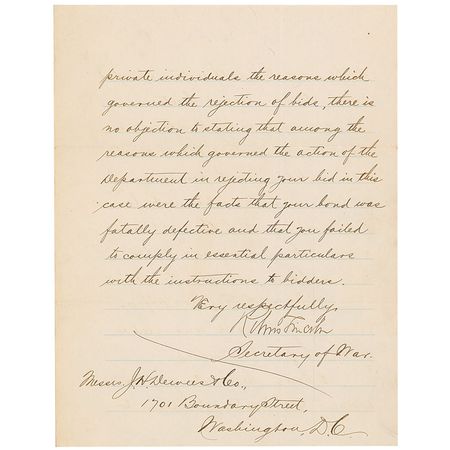 private individuals the reasons which
governed the rejection of bids, there is
no objection to stating that among the
reasons which governed the action of the
Department in rejecting your bid in this
case were the facts that your bond was
fatally defective and that you failed
to comply in essential particulars
with the instructions to bidders.
Very respectfully,
Robert Lincoln
Secretary of War.
Messrs. J. H. Dewees & Co.,
1701 Boundary Street,
Washington, D.C.